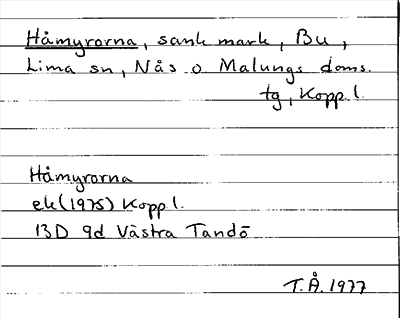 Håmyrorna, sank mark, Bu,
Lima sn, Nås o Malungs doms.
tg, Kopp.l.
Håmyrorna
ek(1975) Kopp l.
13D 9d Västra Tandö
T.Å.1977